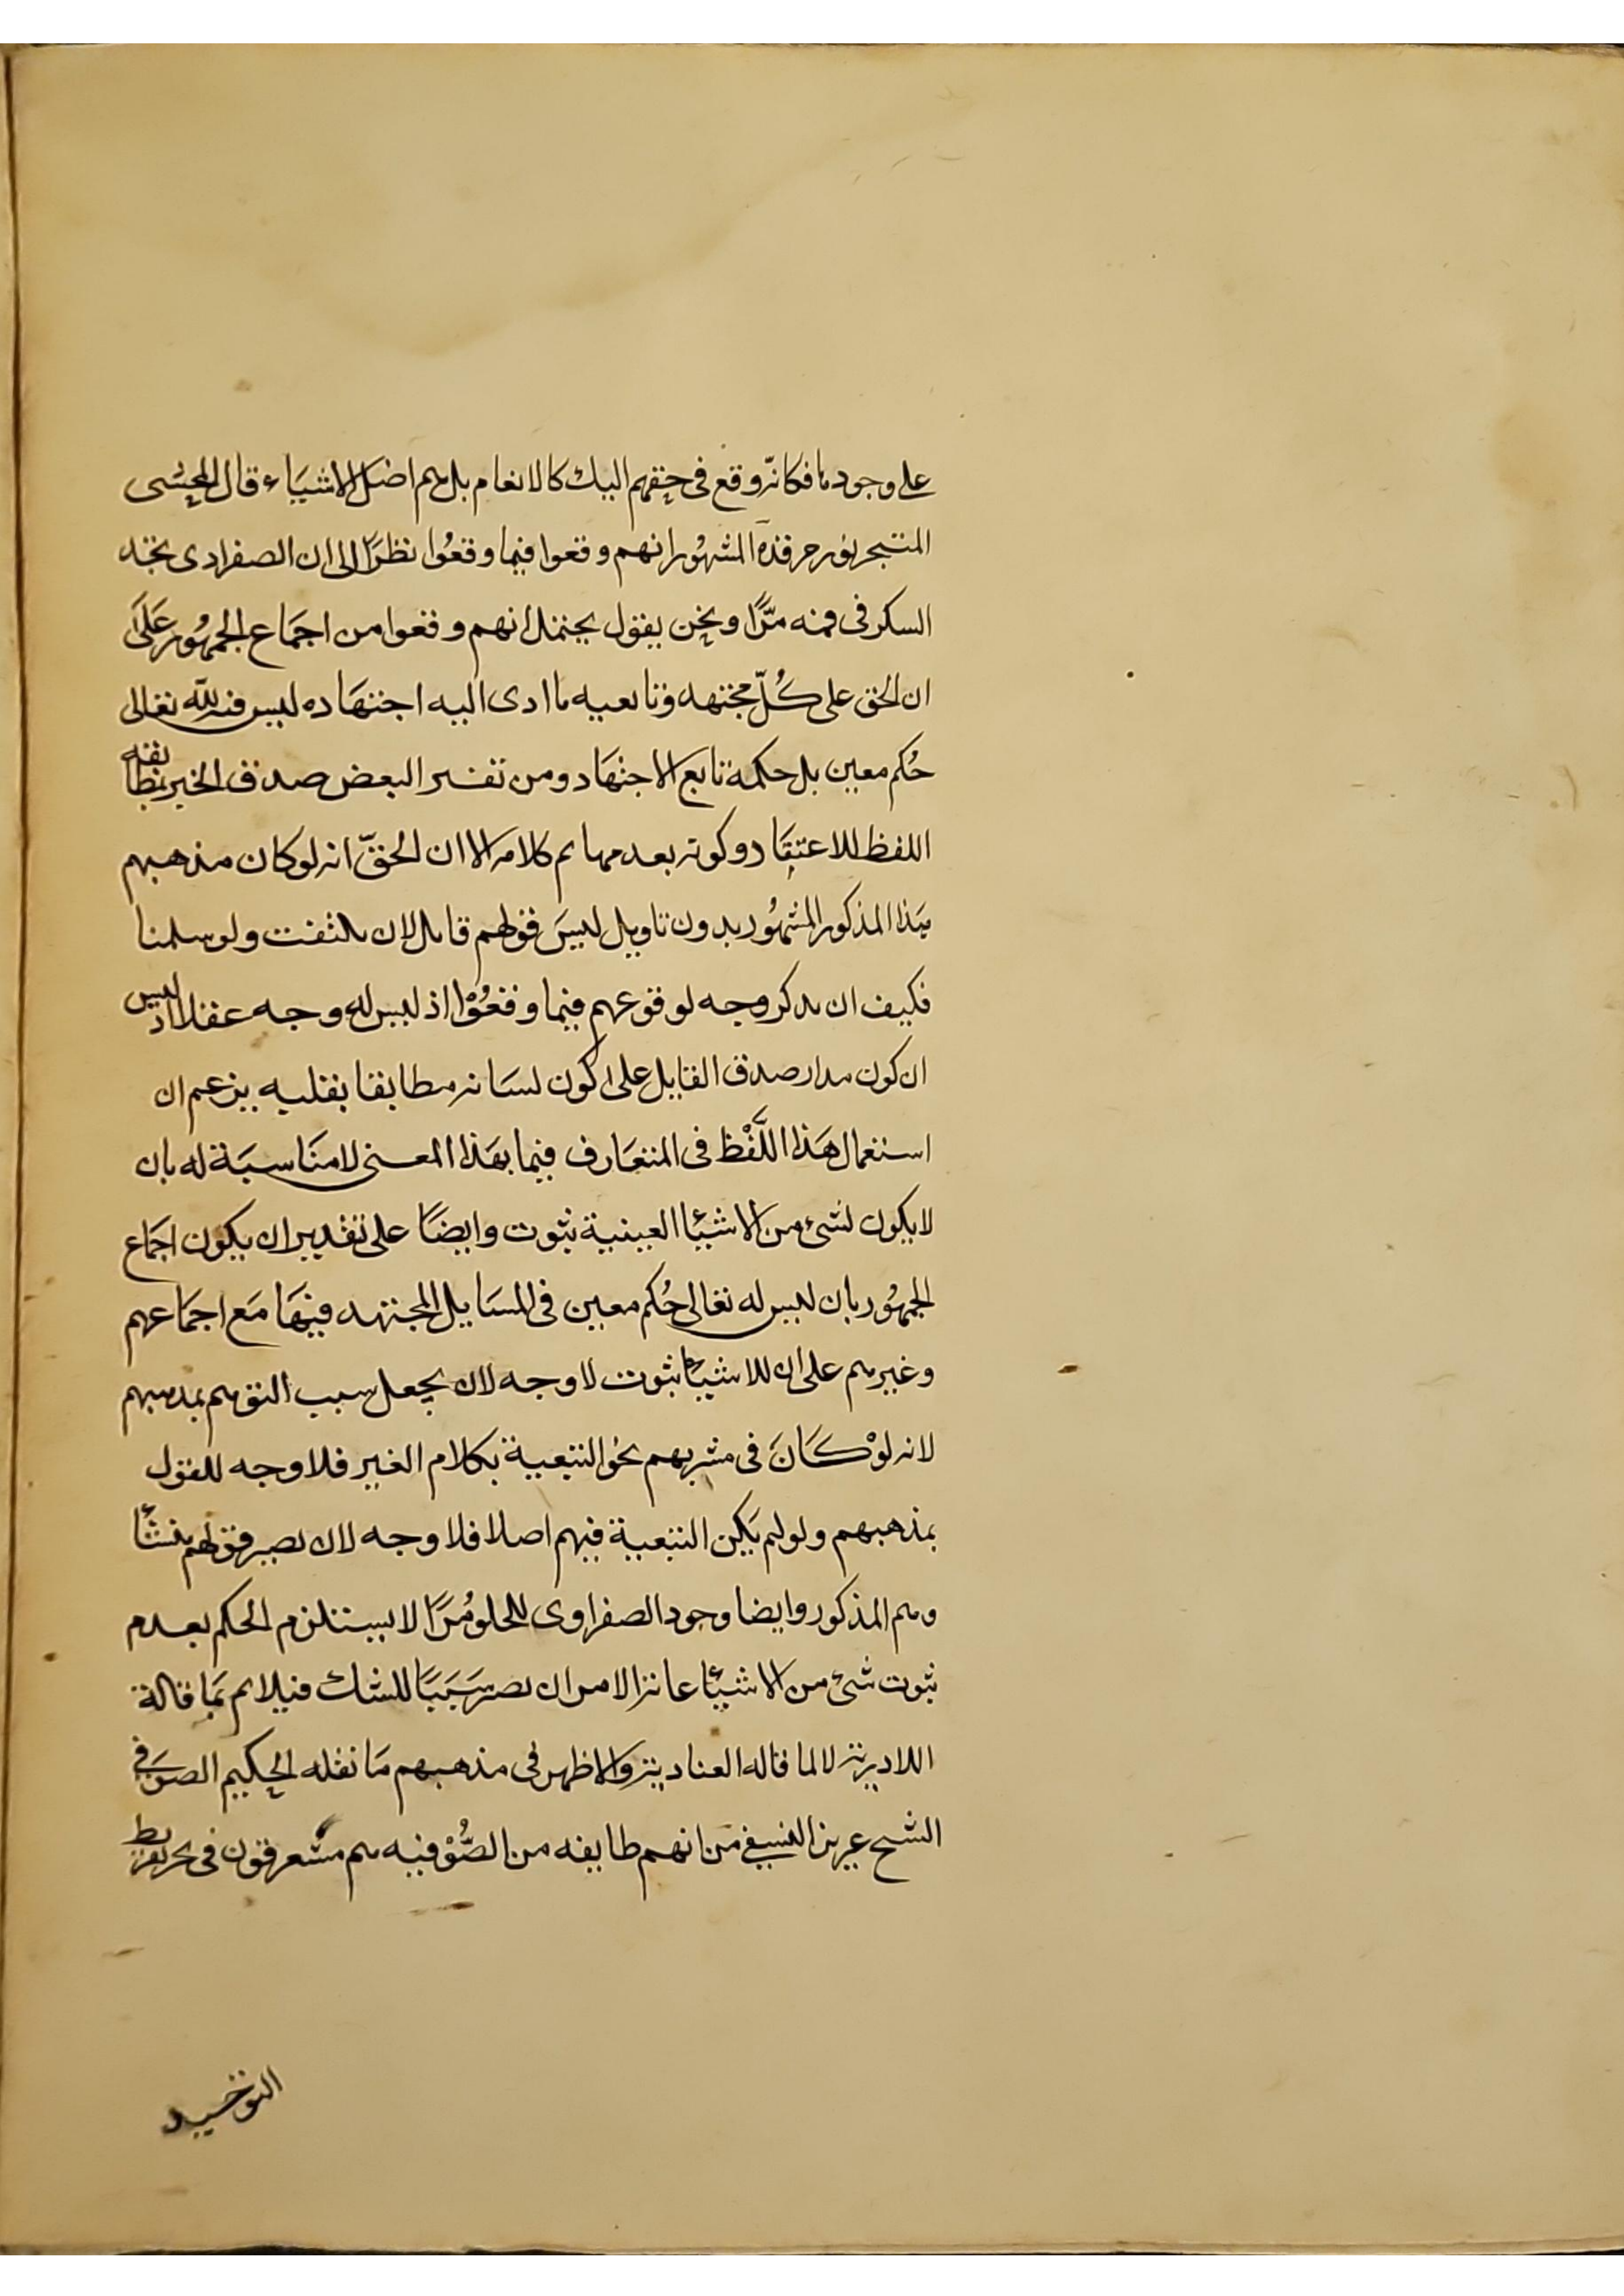 على وجود ما فكانه وقع فى حقهم اليك كالانعام بل هم اضل الاشياء قال المحشى
المتبحر نور حرقده المشهور انهم وقعوا فيما وقعُوا نظرًا الى ان الصفرادى بجد
السكر فى فمه مرًّا ونحن يقول يحتمل انهم وقعوا من اجماع الجمهُور عَلَى
ان الحق على كُلّ مجتهد وتابعيه ما ادى اليه اجتهَاده ليس فيه لله تعالى
حُكم معين بل حكمه تابع الاجتهَاد ومن تفسر البعض صدق الخبر بمطابقه
اللفظ للاعتقَاد وكونه بعد مهاىم كلامه الا ان الحقّ انه لوكان مذهبهم
هَذا المذكور المشهُور بدون تاويل ليسَ قولهم قابل لان يلتفت ولو سلمنا
فكيف ان يدكر وجه لوقوعهم فيما وقعُوْا اذ ليس له وجه عقلا اذ ليس
ان كون مدار صدق القايل على كون لسَانه مطابقا بقلبه يزعم ان
استعمال هَذا اللَّفْظ فى المتعَارف فيما بهَذا المعنى لا منَاسبَة له بان
لا يكون لشئ من الاشئا العينية ثبوت وايضًا على تقدير ان يكون اجَماع
الجمهُور بان ليس له تعالى حُكم معين فى المسَايل المجتهد فيهَا مَع اجمَاعهم
وغيرهم على ان للاشئا ثبوت لا وجه لان يجعل سبب التوهم بمدهبهم
لانه لوْ كَانَ فى مشربهم نحو التبعية بكلام الغير فلا وجه للقول
بمذهبهم ولو لم يَكن التبعية فيهم اصلا فلا وجه لان يصير قولهم منشأ
وهم المذكور وايضا وجود الصفراوى للحلو مُرًا لا يستلزم الحكم بعدم
ثبوت شئ من الاشئا غاية الامر ان يصير سَبَبًا للشك فيلايم بَما قالة
اللاادرية لا لما قاله العنادية والاظهر فى مذهبهم مَا نقله الحكيم الصوَفى
الشيح عزيز النسفى من انهم طايفه من الصُّوْفيه هم مشعرقون فى بحر تفريط
التوحيد